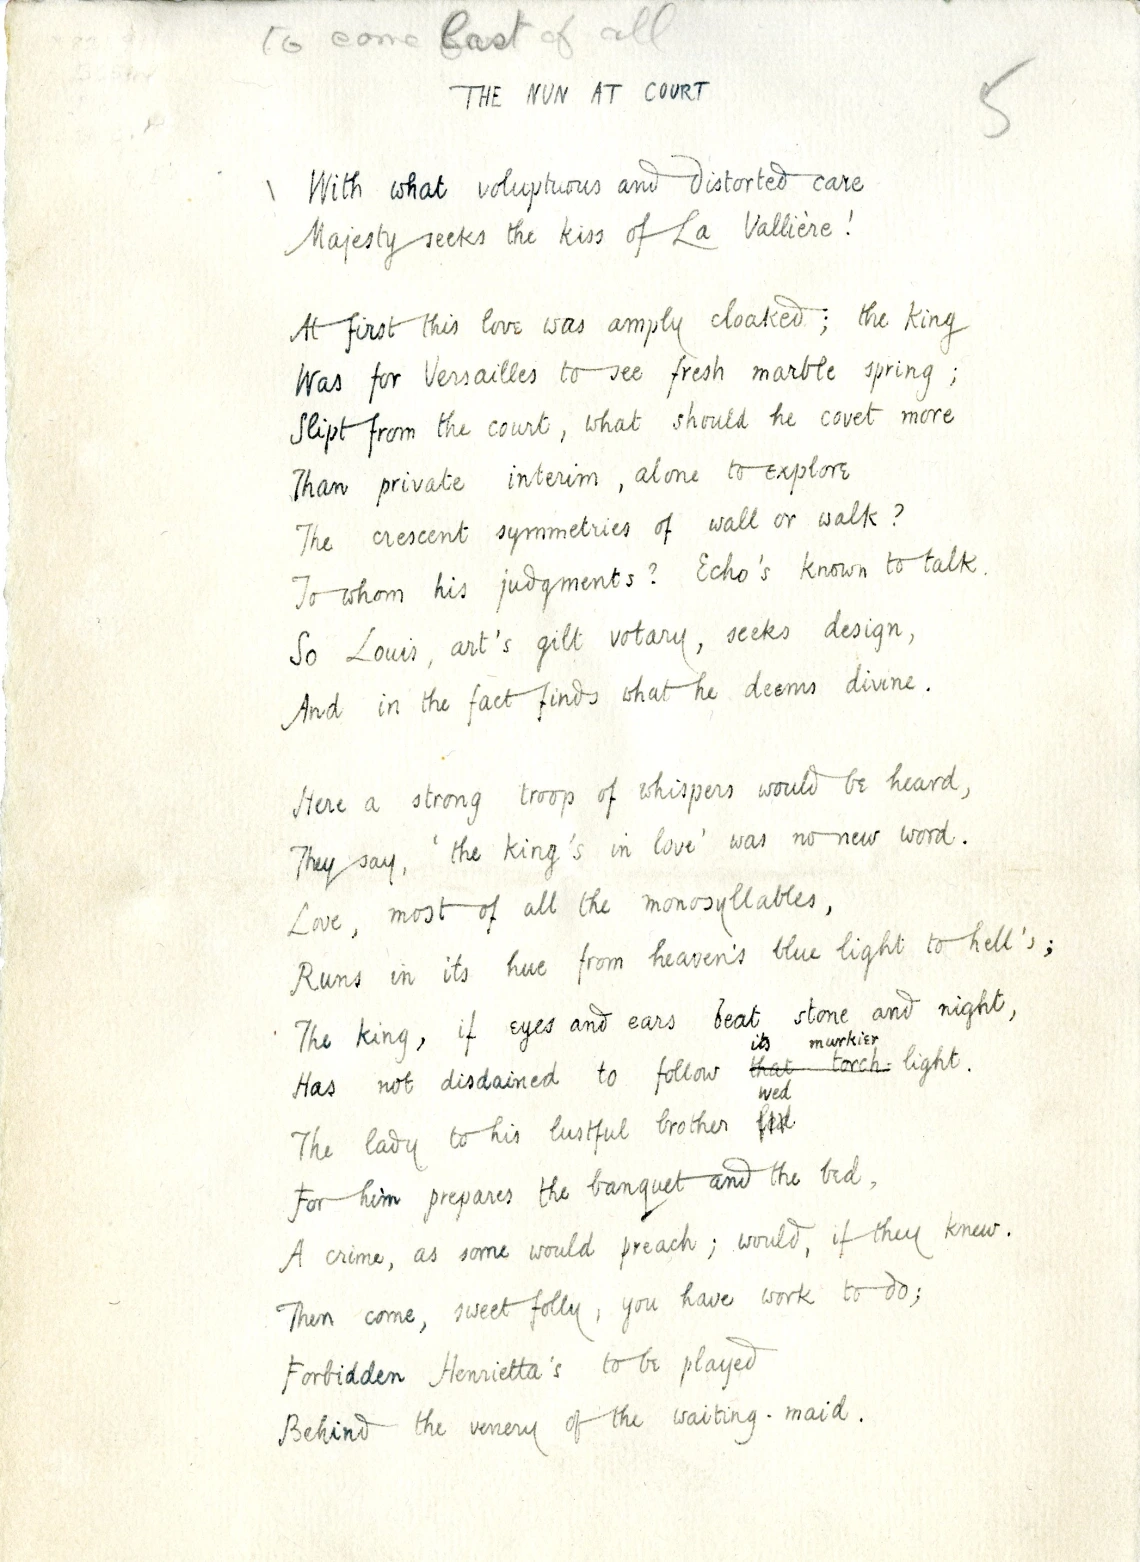 to come last of all
THE NUN AT COURT
5
With what voluptuous and distorted care
Majesty seeks the kiss of La Vallière!
At first this love was amply cloaked; the king
Was for Versailles to see fresh marble spring;
Slipt from the court, what should he covet more
Than private interim, alone to explore
The crescent symmetries of wall or walk?
To whom his judgments? Echo's known to talk.
So Louis, art's gilt votary, seeks design,
And in the fact finds what he deems divine.
Here a strong troop of whispers would be heard,
They say, 'the king's in love' was no new word.
Love, most of all the monosyllables,
Runs in its hue from heaven's blue light to hell's;
The king, if eyes and ears beat stone and night,
its murkier
Has not disdained to follow that torch-light.
wed
The lady to his lustful brother
For him prepares the banquet and the bed,
A crime, as some would preach; would, if they knew.
Then come, sweet folly, you have work to do;
Forbidden Henrietta's to be played
Behind the venery of the waiting-maid.